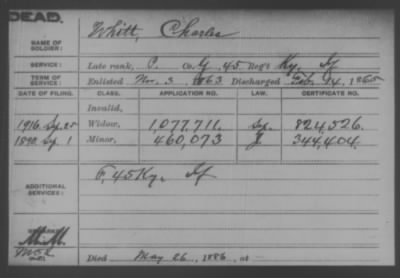 DEAD.
NAME OF SOLDIER: Whitt, Charles
SERVICE: Late rank, P. Co. G, 45 Reg't Ky. If
TERM OF SERVICE: Enlisted Nov. 3, 1863 Discharged Feb. 14, 1865
DATE OF FILING. CLASS. APPLICATION NO. LAW. CERTIFICATE NO.
Invalid,
1916. Sep. 25 Widow, 1,077,711. 824,526.
1890. Sep. 1 Minor, 460,073 344,404.
ADDITIONAL SERVICES: F, 45 Ky. If
Died May 26, 1886, at